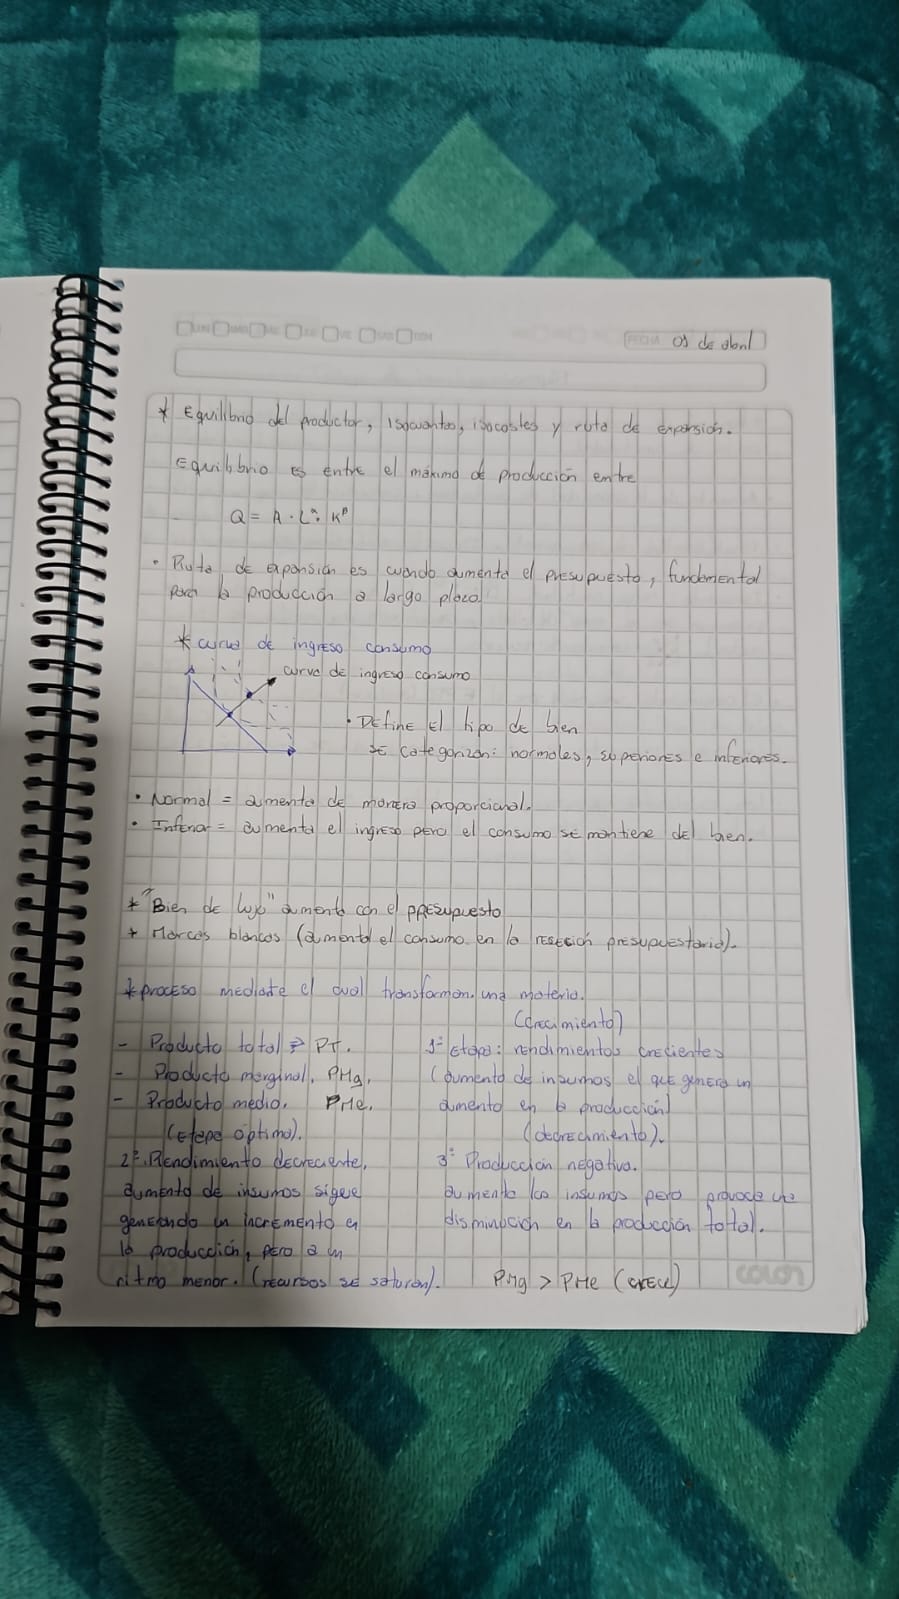 LUN MAR MIE JUE VIE SAB DOM
FECHA 09 de abril
* Equilibrio del productor, isocuantas, isocostes y ruta de expansión.
Equilibrio es entre el máximo de producción entre
Q = A · L^α · K^β
• Ruta de expansión es cuando aumenta el presupuesto, fundamental
para la producción a largo plazo.
* curva de ingreso consumo
curva de ingreso consumo
• Define el tipo de bien
se categorizan: normales, superiores e inferiores.
• Normal = aumenta de manera proporcional.
• Inferior = aumenta el ingreso pero el consumo se mantiene del bien.
* "Bien de lujo" aumenta con el presupuesto
* Marcas blancas (aumenta el consumo en la presupuestaria).
* proceso mediate el cual transforman una materia.
(crecimiento)
- Producto total PT.
- Producto marginal. PMg.
- Producto medio. PMe.
1° Etapa: rendimientos crecientes
(aumento de insumos el que genera un
aumento en la producción)
(Etapa óptima).
2° Rendimiento decreciente,
aumento de insumos sigue
generando un incremento en
la producción, pero a un
ritmo menor. (recursos se saturan).
(decrecimiento).
3° Producción negativa.
aumenta los insumos pero provoca una
disminución en la producción total.
PMg > PMe (crece)
colon